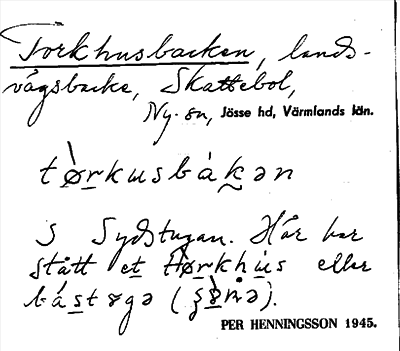 Torkhusbacken, lands-
vägsbacke, Skattebol,
Ny sn, Jösse hd, Värmlands län.
tørkusbákən
S Sydstugan. Här har
stått et tørkhus eller
bástəgə
PER HENNINGSSON 1945.